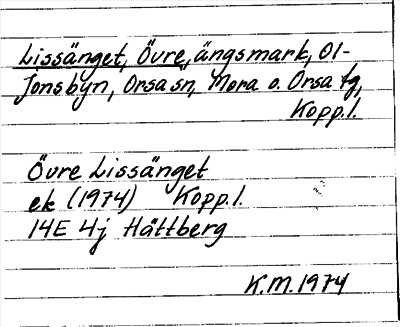 Lissänget, Övre, ängsmark, Ol-
Jonsbyn, Orsa sn, Mora o. Orsa tg,
Kopp.l.
Övre Lissänget
ek (1974) Kopp.l.
14E 4j Hättberg
K.M. 1974